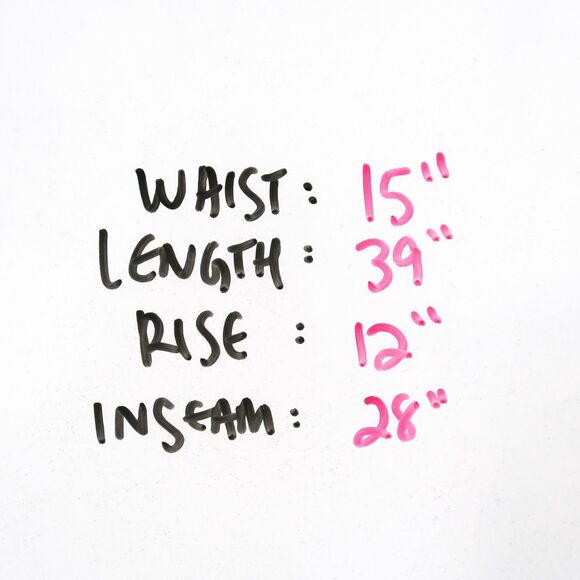 WAIST: 15"
LENGTH: 39"
RISE : 12"
INSEAM: 28"